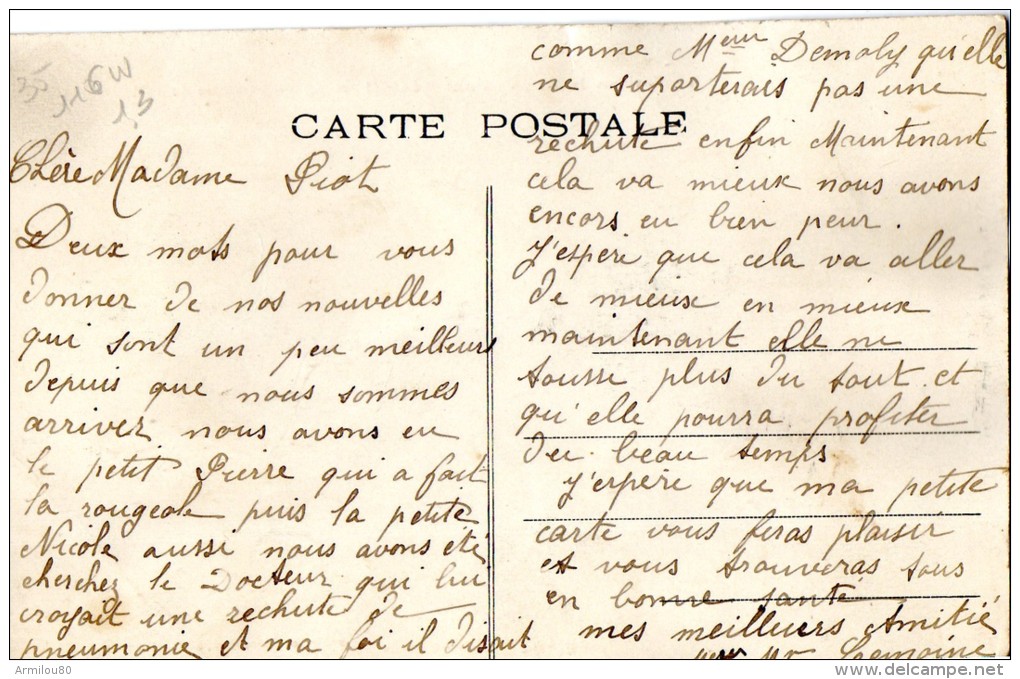 35
116W
13
CARTE POSTALE
Chère Madame Piot
Deux mots pour vous
donner de nos nouvelles
qui sont un peu meilleurs
depuis que nous sommes
arriver nous avons eu
le petit Pierre qui a fait
la rougeole puis la petite
Nicole aussi nous avons été
cherchez le Docteur qui lui
croyait une rechute de
pneumonie et ma foi il disait
comme Meur Demoly qu'elle
ne suporterais pas une
rechute enfin Maintenant
cela va mieux nous avons
encors eu bien peur.
J'espere que cela va aller
de mieux en mieux
maintenant elle ne
tousse plus du tout et
qu'elle pourra profiter
du beau temps.
J'espère que ma petite
carte vous feras plaisir
et vous trouveras tous
en bonne santé
mes meilleurs Amitié
Mr Lemoine
Armilou80
www.delcampe.net